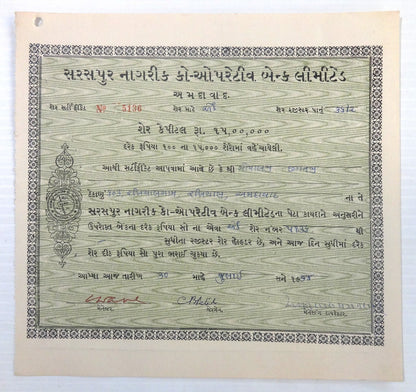 સરસપુર નાગરીક કો-ઓપરેટીવ બેન્ક લીમીટેડ
અમદાવાદ.
શેર સર્ટીફીકેટ No 5136 શેર માટે એક શેર રજીસ્ટર પાનું
શેર કેપીટલ રૂા. ૧૫,૦૦,૦૦૦
દરેક રૂપિયા ૧૦૦ ના ૧૫,૦૦૦ શેરોમાં વહેંચાયેલી.
આથી સર્ટીફીકેટ આપવામાં આવે છે કે શ્રી
ઠેકાણું અમદાવાદ ના તે
સરસપુર નાગરીક કો-ઓપરેટીવ બેન્ક લીમીટેડના પેટા કાયદાને અનુસરીને
ઉપરોક્ત બેંકના દરેક રૂપિયા સો ના એવા એક શેર નંબર
સુધીના રજીસ્ટર શેર હોલ્ડર છે, અને આજ દિન સુધીમાં દરેક
શેર દીઠ રૂપિયા સો પુરા ભરાઈ ચુક્યા છે.
આપ્યા આજ તારીખ ૩૦ માહે જુલાઈ સને
મેનેજર. ચેરમેન. મેનેજીંગ ડીરેક્ટર